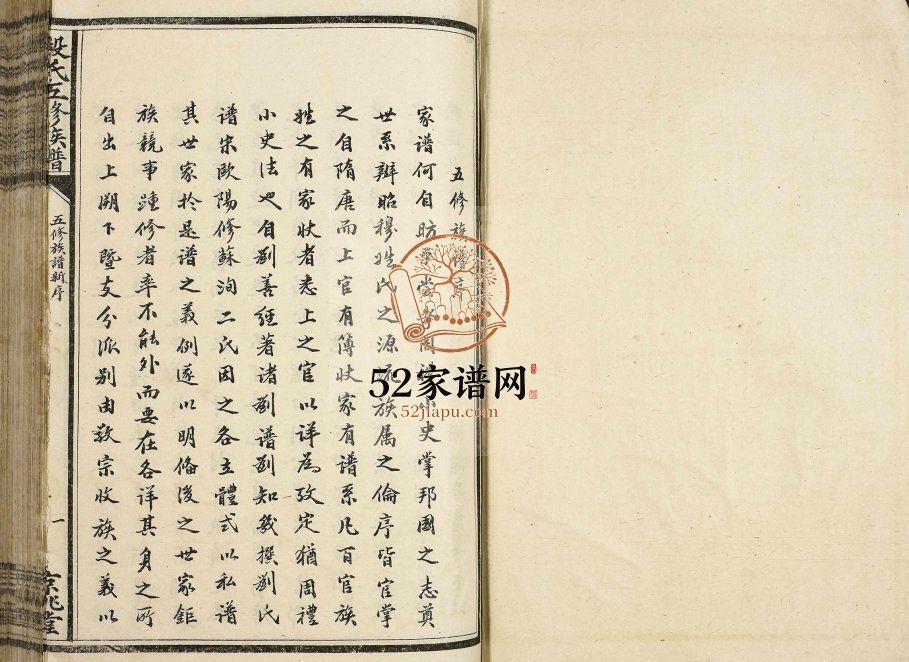 五修族譜序
家譜何自昉嘗考周禮小史掌邦國之志奠
世系辨昭穆姓氏之源流族属之倫序皆官掌
之自隋唐而上官有簿状家有譜系凡百官族
姓之有家状者悉上之官以詳為攷定猶周禮
小史法也自劉善經著諸劉譜劉知幾撰劉氏
譜宋歐陽修蘇洵二氏因之各立體式以私譜
其世家於是譜之義例遂以明偹後之世家鉅
族競事踵修者率不能外而要在各詳其身之所
自出上朔下暨支分派别由敦宗收族之義以
段氏五修族譜
五修族譜新序
一
京兆堂
52家谱网
52jiapu.com